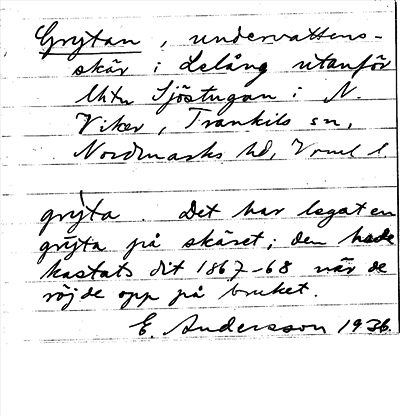 Grytan, undervattens-
skär i Lelång utanför
Sjöstugan i N.
Viker, Trankils sn,
Nordmarks hd, Vrml l.
grỳta. Det har legat en
grỳta på skäret; den hade
kastats dit 1867-68 när de
röjde opp på bruket.
E. Andersson 1936.